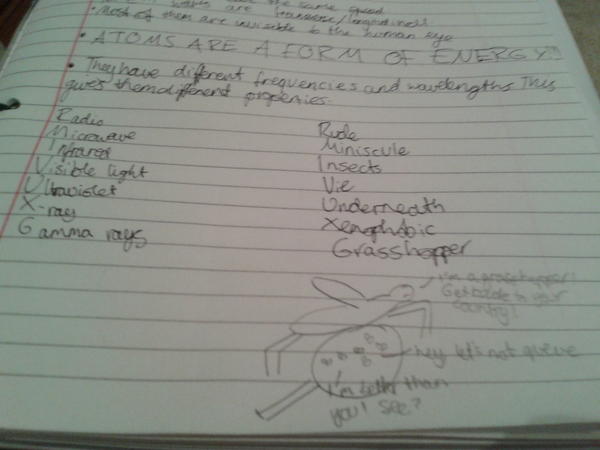 the same speed
waves are transverse/longitudinal
• Most of them are invisible to the human eye
• ATOMS ARE A FORM OF ENERGY!!
• They have different frequencies and wavelengths This
gives them different properties.
Radio
Microwave
Infrared
Visible light
Ultraviolet
X-ray
Gamma rays
Rude
Miniscule
Insects
Vie
Underneath
Xenophobic
Grasshopper
I'm a grasshopper!
Get back to your
country!
hey let's not queue
I'm better than
you! See?